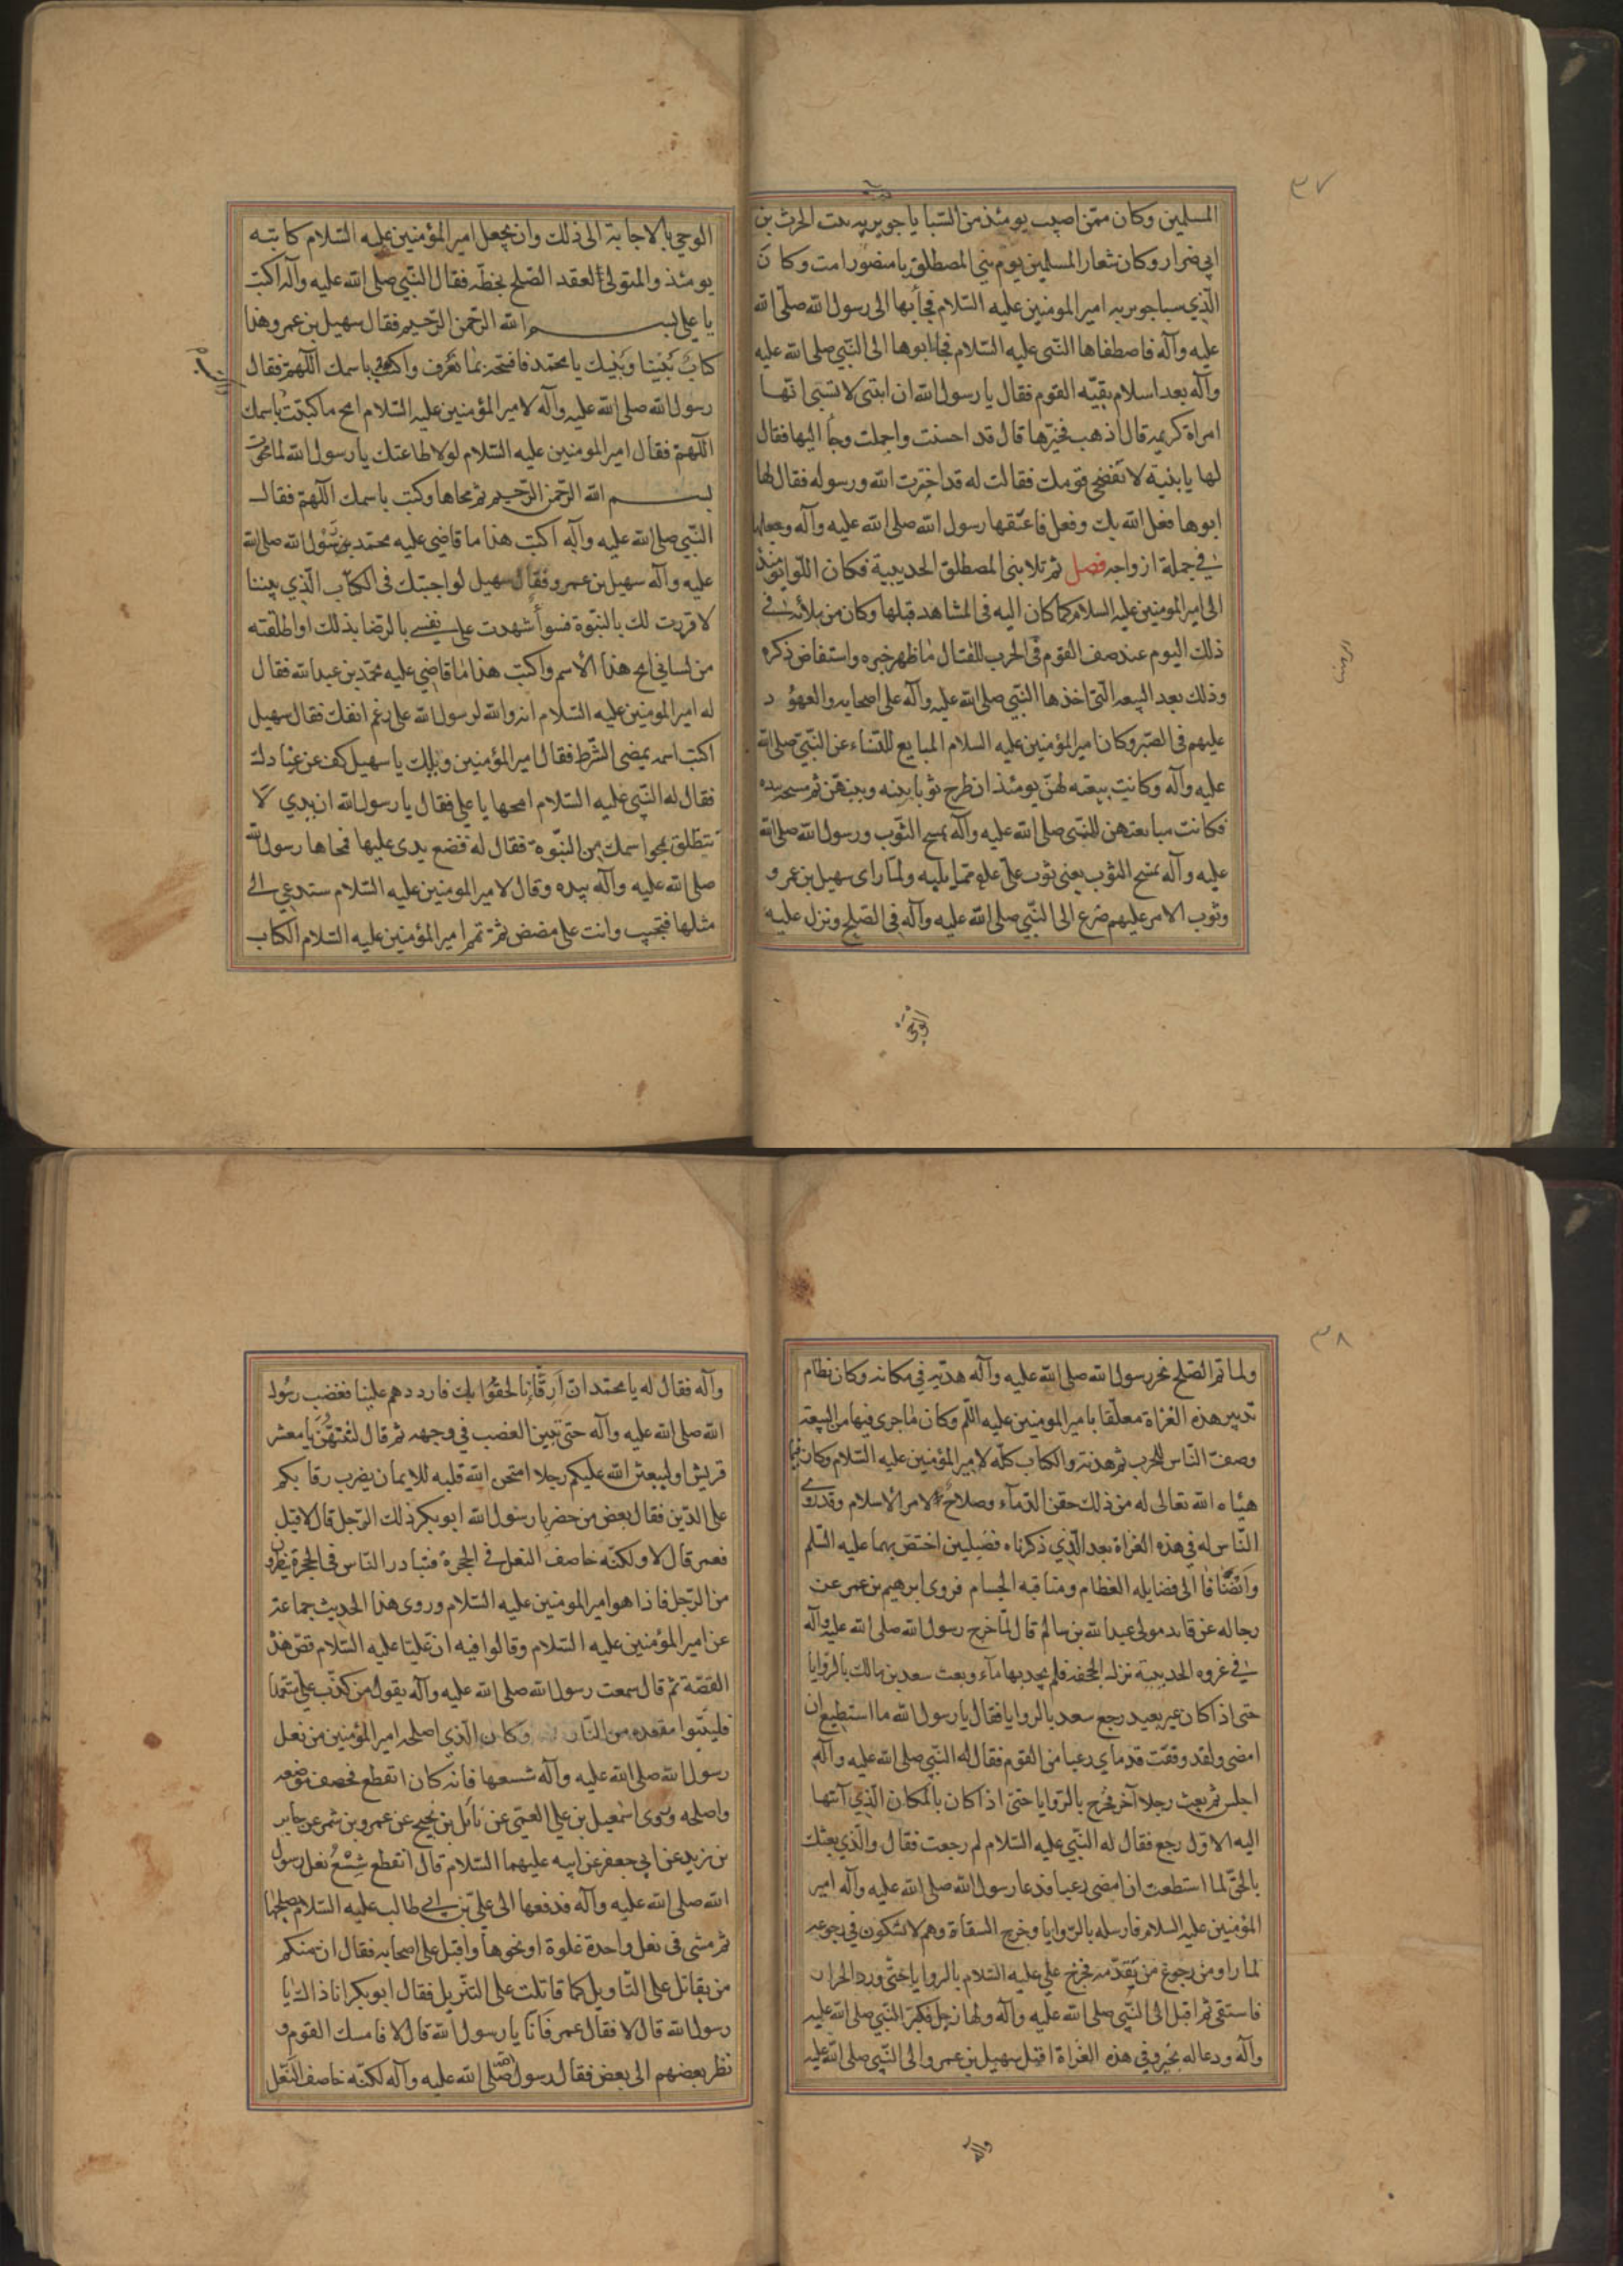 ٣٧
المسلمين وكان ممن اصيب يومئذ من السبايا جويريه بنت الحرث بن
ابي ضرار وكان شعار المسلمين يوم بني المصطلق يا منصور امت وكان
الذي سبا جويريه امير المومنين عليه السلام فجأ بها الى رسول الله صلى الله
عليه وآله فاصطفاها النبي عليه السلام فجاء ابوها الى النبي صلى الله عليه
وآله بعد اسلام بقيه القوم فقال يا رسول الله ان ابنتي لا تسبى انها
امراة كريمه قال اذهب فخيرها قال قد احسنت واجملت وجأ اليها فقال
لها يا بنية لا تفضحي قومك فقالت له قد اخترت الله ورسوله فقال لها
ابوها فعل الله بك وفعل فاعتقها رسول الله صلى الله عليه وآله وجعلها
في جملة ازواجه فصل ثم تلا بني المصطلق الحديبية فكان اللوا يومئذ
الى امير المومنين عليه السلام كما كان اليه في المشاهد قبلها وكان من بلائه في
ذلك اليوم عند صف القوم في الحرب للقتال ما ظهر خبره واستفاض ذكره
وذلك بعد البيعه التي اخذها النبي صلى الله عليه وآله على اصحابه والعهود
عليهم في الصبر وكان امير المؤمنين عليه السلام المبايع للنساء عن النبي صلى الله
عليه وآله وكانت بيعته لهن يومئذ ان طرح ثوبا بينه وبينهن ثم مسحه بيده
فكانت مبايعتهن للنبي صلى الله عليه وآله بمسح الثوب ورسول الله صلى الله
عليه وآله يمسح الثوب يعني ثوب علي علم مما يليه ولما راى سهيل بن عمرو
وثوب الامر عليهم ضرع الى النبي صلى الله عليه وآله في الصلح ونزل عليه
الوحي
الوحي بالاجابة الى ذلك وان يجعل امير المؤمنين عليه السلام كاتبه
يومئذ والمتولى لعقد الصلح بخطه فقال النبي صلى الله عليه وآله اكتب
يا علي بسم الله الرحمن الرحيم فقال سهيل بن عمرو هذا
كتاب بيننا وبينك يا محمد فافتحه بما نعرف واكتب باسمك اللهم فقال
رسول الله صلى الله عليه وآله لامير المؤمنين عليه السلام امح ما كتبت باسمك
اللهم فقال امير المومنين عليه السلام لولا طاعتك يا رسول الله لما محوت
بسم الله الرحمن الرحيم ثم محاها وكتب باسمك اللهم فقال
النبي صلى الله عليه وآله اكتب هذا ما قاضى عليه محمد رسول الله صلى الله
عليه وآله سهيل بن عمرو فقال سهيل لو اجبتك في الكتاب الذي بيننا
لاقررت لك بالنبوة فسوأ شهدت على نفسي بالرضا بذلك او اطلقته
من لساني امح هذا الاسم واكتب هذا ما قاضى عليه محمد بن عبد الله فقال
له امير المومنين عليه السلام انه والله لرسول الله على رغم انفك فقال سهيل
اكتب اسمه يمضي الشرط فقال امير المؤمنين ويلك يا سهيل كف عن عنادك
فقال له النبي عليه السلام امحها يا علي فقال يا رسول الله ان يدي لا
تنطلق بمحو اسمك من النبوة فقال له فضع يدي عليها فمحاها رسول الله
صلى الله عليه وآله بيده وقال لامير المومنين عليه السلام ستدعى الى
مثلها فتجيب وانت على مضض ثم تمم امير المؤمنين عليه السلام الكتاب
٣٨
ولما تم الصلح نحر رسول الله صلى الله عليه وآله هديه في مكانه وكان نظام
تدبير هذه الغزاة معلقا بامير المومنين عليه اللم وكان ما جرى فيها من البيعة
وصف الناس للحرب ثم هدنة والكتاب كله لامير المؤمنين عليه السلام وكان فيما
هيأه الله تعالى له من ذلك حقن الدمآء وصلاح لامر الاسلام وقد روى
الناس له في هذه الغزاة بعد الذي ذكرناه فضيلين اختص بهما عليه السلم
وانضافا الى فضايله العظام ومناقبه الجسام فروى ابرهيم بن عمر عن
رجاله عن قايد مولى عبد الله بن سالم قال لما خرج رسول الله صلى الله عليه وآله
في غزوه الحديبية نزل الجحفه فلم يجد بها مآء وبعث سعد بن مالك بالروايا
حتى اذا كان غير بعيد رجع سعد بالروايا فقال يا رسول الله ما استطيع ان
امضي ولقد وقفت قدماي رعبا من القوم فقال له النبي صلى الله عليه وآله
اجلس ثم بعث رجلا آخر فخرج بالروايا حتى اذا كان بالمكان الذي انتهى
اليه الاول رجع فقال له النبي عليه السلام لم رجعت فقال والذي بعثك
بالحق لما استطعت ان امضي رعبا فدعا رسول الله صلى الله عليه وآله امير
المؤمنين عليه السلام فارسله بالروايا وخرج السقاة وهم لا يشكون في رجوعه
لما راو من رجوع من تقدمه فخرج علي عليه السلام بالروايا حتى ورد الحرار
فاستقى ثم اقبل الى النبي صلى الله عليه وآله ولها زجل فكبر النبي صلى الله عليه
وآله ودعا له بخير وفي هذه الغزاة اقبل سهيل بن عمرو الى النبي صلى الله عليه
وآله
وآله فقال له يا محمد ان ارقآنا لحقوا بك فارددهم علينا فغضب رسول
الله صلى الله عليه وآله حتى تبين الغضب في وجهه ثم قال لتنتهن يا معشر
قريش او ليبعثن الله عليكم رجلا امتحن الله قلبه للايمان يضرب رقابكم
على الدين فقال بعض من حضر يا رسول الله ابو بكر ذلك الرجل قال لا قيل
فعمر قال لا ولكنه خاصف النعل في الحجرة فتبادر الناس في الحجرة ينظرون
من الرجل فاذا هو امير المومنين عليه السلام وروى هذا الحديث جماعة
عن امير المؤمنين عليه السلام وقالوا فيه ان عليا عليه السلام قص هذه
القصة ثم قال سمعت رسول الله صلى الله عليه وآله يقول من كذب علي متعمدا
فليتبوا مقعده من النار وكان الذي اصلحه امير المؤمنين من نعل
رسول الله صلى الله عليه وآله شسعها فانه كان انقطع فخصف موضعه
واصلحه وروى اسمعيل بن علي العمي عن نائل بن نجيح عن عمرو بن شمر عن جابر
بن يزيد عن ابي جعفر عن ابيه عليهما السلام قال انقطع شسع نعل رسول
الله صلى الله عليه وآله فدفعها الى علي بن ابي طالب عليه السلام يصلحها
ثم مشى في نعل واحدة غلوة او نحوها واقبل على اصحابه فقال ان منكم
من يقاتل على التاويل كما قاتلت على التنزيل فقال ابو بكر انا ذاك يا
رسول الله قال لا فقال عمر فانا يا رسول الله قال لا فامسك القوم و
نظر بعضهم الى بعض فقال رسول الله صلى الله عليه وآله لكنه خاصف النعل